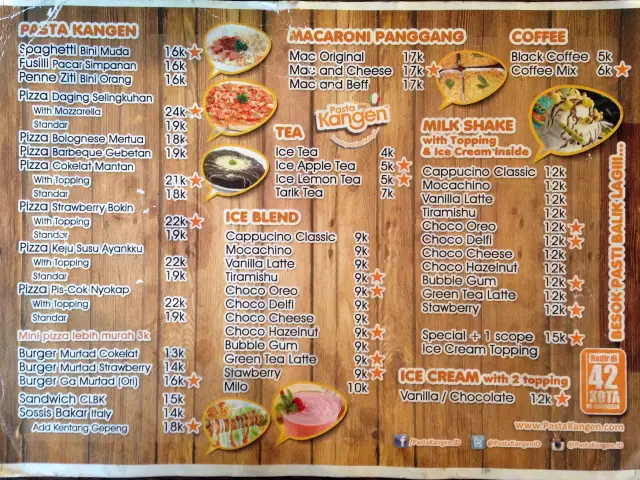 PASTA KANGEN
Spaghetti Bini Muda 16k
Fusilli Pacar Simpanan 16k
Penne Ziti Bini Orang 16k
Pizza Daging Selingkuhan
With Mozzarella 24k
Standar 19k
Pizza Bolognese Mertua 18k
Pizza Barbeque Gebetan 19k
Pizza Cokelat Mantan
With Topping 21k
Standar 18k
Pizza Strawberry Bokin
With Topping 22k
Standar 19k
Pizza Keju Susu Ayankku
With Topping 22k
Standar 19k
Pizza Pis-Cok Nyokap
With Topping 22k
Standar 19k
Mini pizza lebih murah 3k
Burger Murtad Cokelat 13k
Burger Murtad Strawberry 14k
Burger Ga Murtad (Ori) 16k
Sandwich CLBK 15k
Sossis Bakar Italy 14k
Add Kentang Gepeng 18k
MACARONI PANGGANG
Mac Original 17k
Mac and Cheese 17k
Mac and Beff 17k
Pasta
Kangen
TEA
Ice Tea 4k
Ice Apple Tea 5k
Ice Lemon Tea 5k
Tarik Tea 7k
ICE BLEND
Cappucino Classic 9k
Mocachino 9k
Vanilla Latte 9k
Tiramishu 9k
Choco Oreo 9k
Choco Delfi 9k
Choco Cheese 9k
Choco Hazelnut 9k
Bubble Gum 9k
Green Tea Latte 9k
Stawberry 9k
Milo 10k
COFFEE
Black Coffee 5k
Coffee Mix 6k
MILK SHAKE
with Topping
& Ice Cream Inside
Cappucino Classic 12k
Mocachino 12k
Vanilla Latte 12k
Tiramishu 12k
Choco Oreo 12k
Choco Delfi 12k
Choco Cheese 12k
Choco Hazelnut 12k
Bubble Gum 12k
Green Tea Latte 12k
Stawberry 12k
Special + 1 scope 15k
Ice Cream Topping
ICE CREAM with 2 topping
Vanilla / Chocolate 12k
BESOK PASTI BALIK LAGIII...
Hadir di
42
KOTA
www.PastaKangen.com
/PastaKangen.ID
@PastaKangenID
@PastaKangen.ID